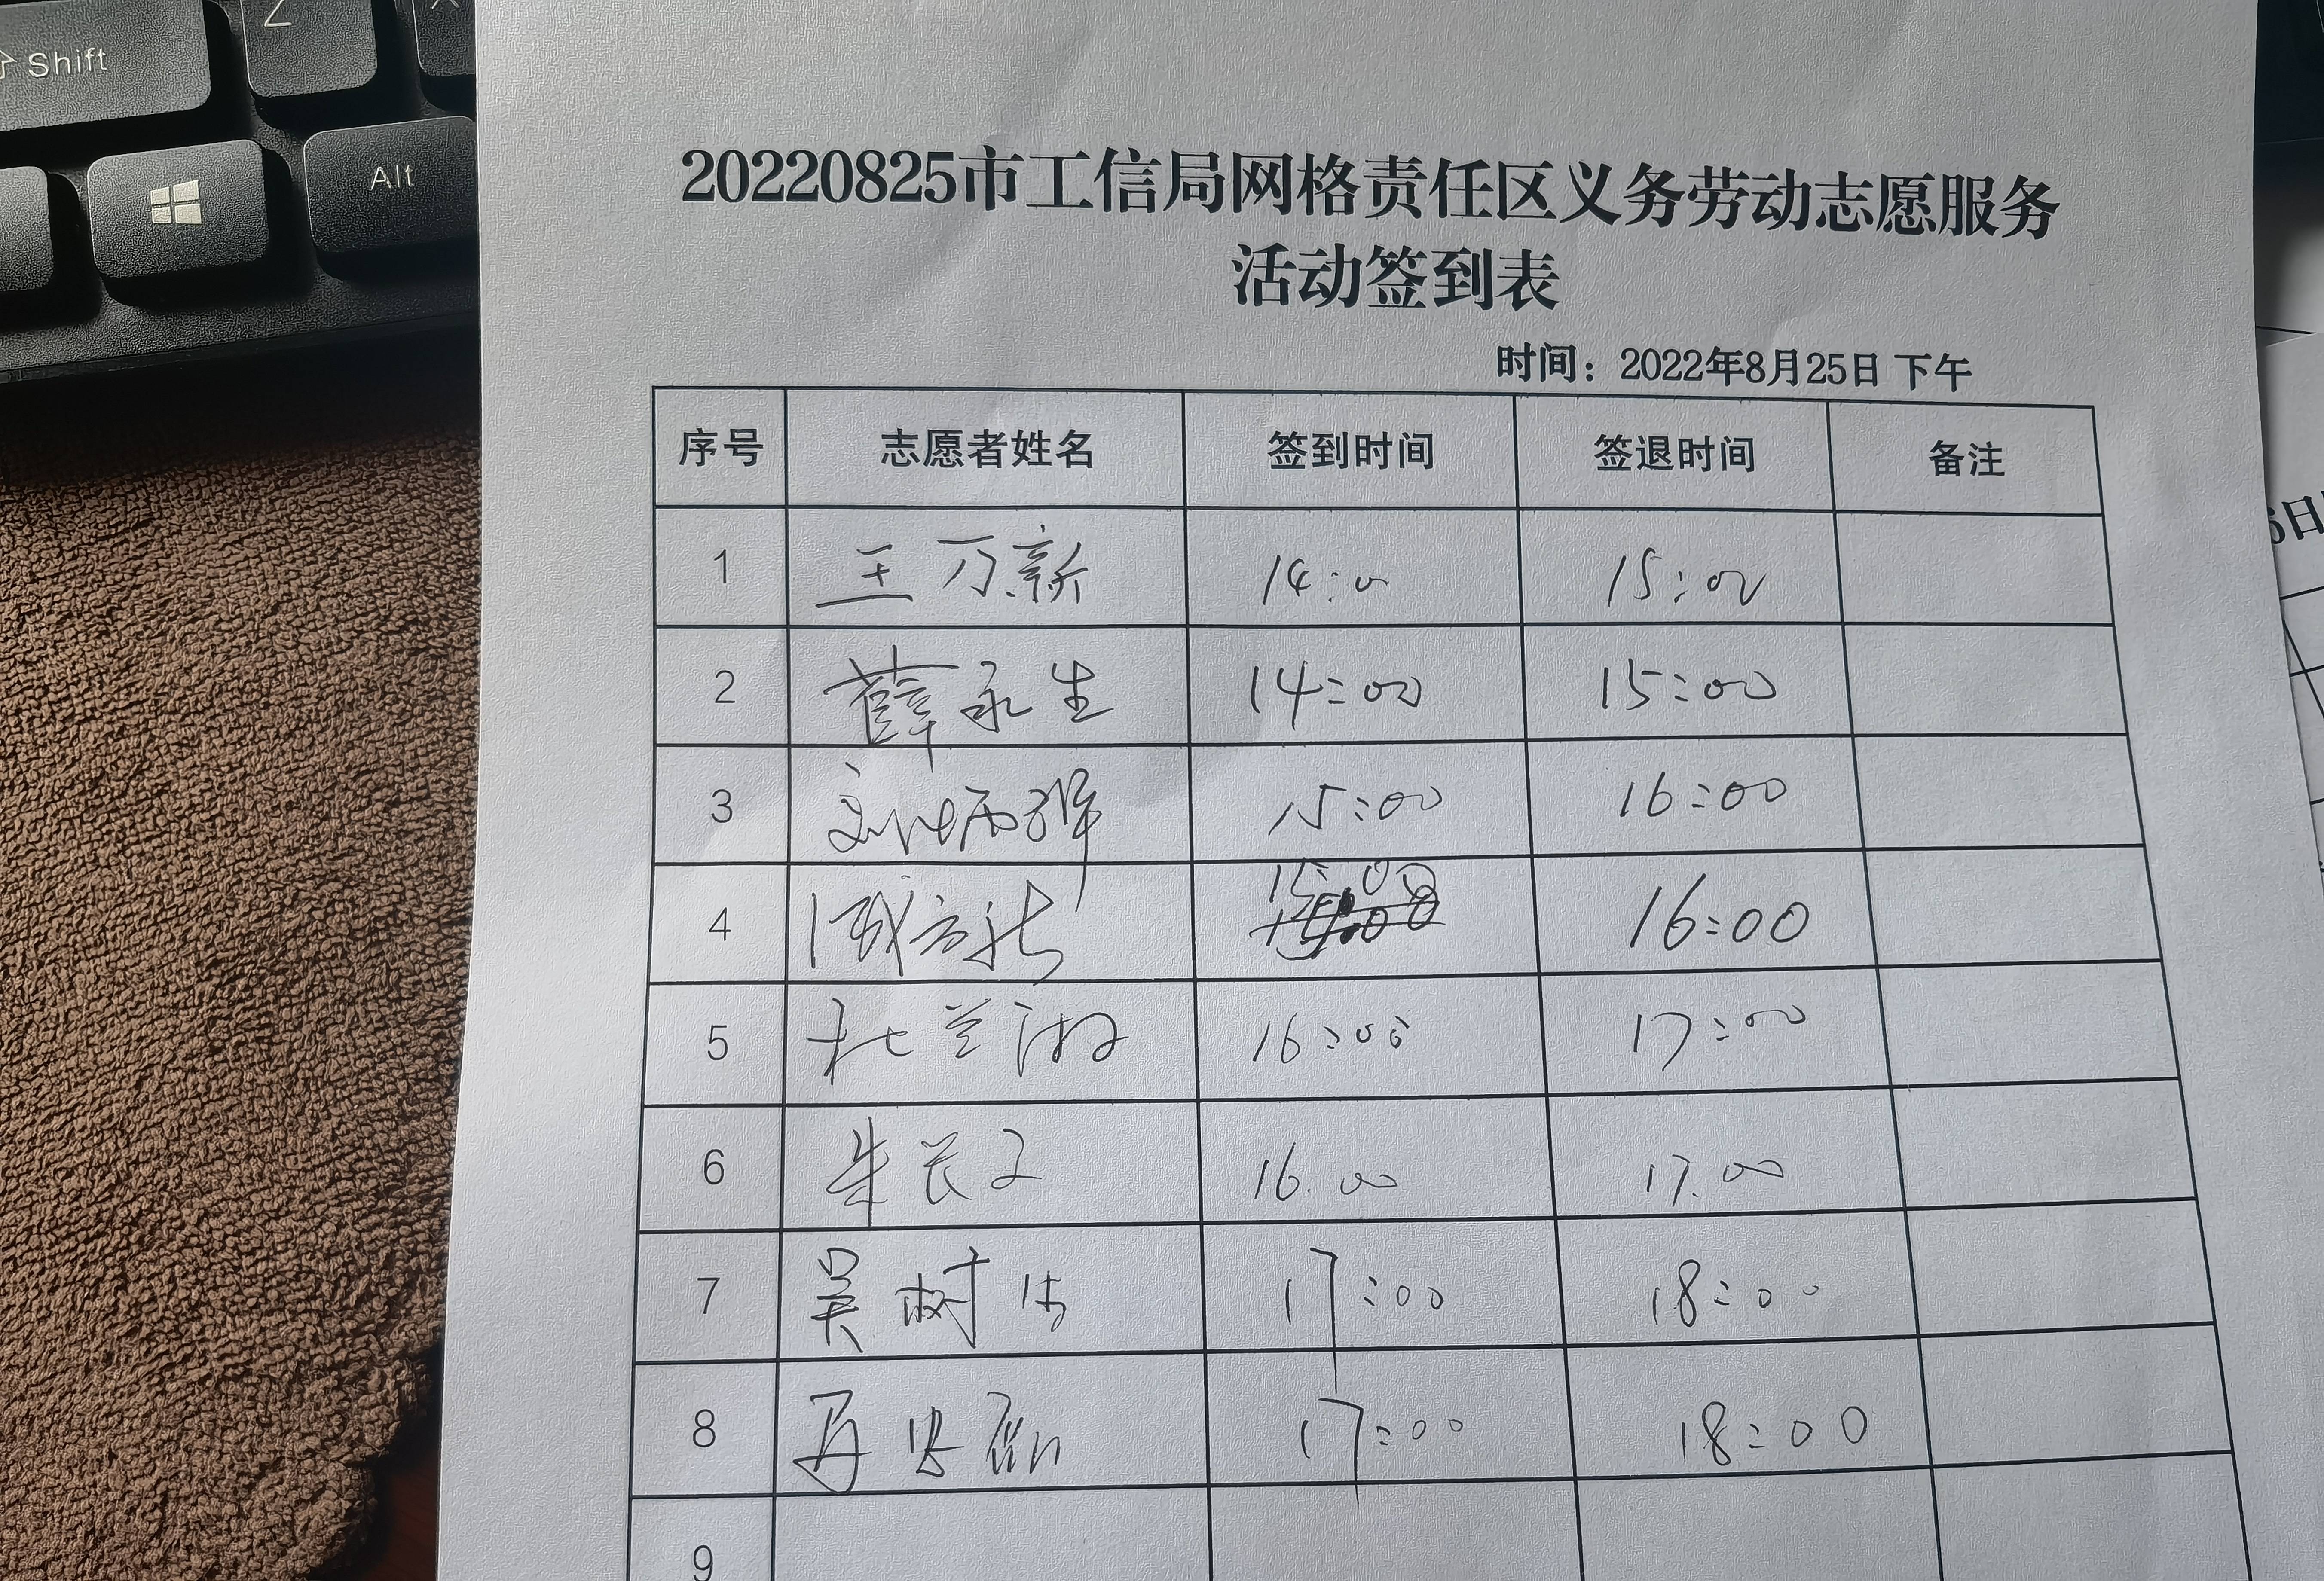 Shift
Z
Alt
20220825市工信局网格责任区义务劳动志愿服务
活动签到表
时间：2022年8月25日 下午
序号 志愿者姓名 签到时间 签退时间 备注
1 王万新 14:00 15:00
2 薛永生 14:00 15:00
3 刘 15:00 16:00
4 15:00 16:00
5 杜兰 16:00 17:00
6 朱 16.00 17.00
7 吴树 17:00 18:00
8 17:00 18:00
9
6日